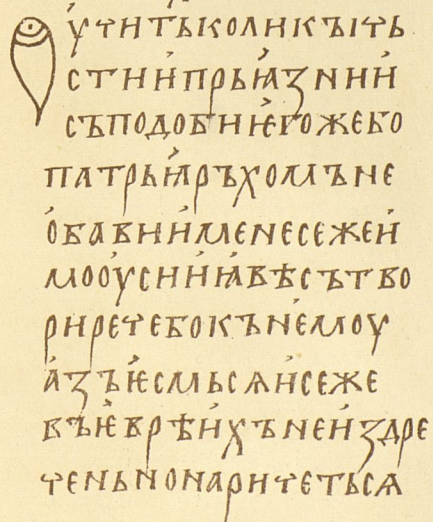 Оучитьколикъıчь
стиипрьꙗзнии
съподобиѥгожебо
патрьꙗръхомъне
обавиименесежеи
мооусииꙗвѣсътво
риречебокънемоу
азъѥсмьсѧисеже
въѥврѣихънеиздре
ченьнонаричетьсѧ